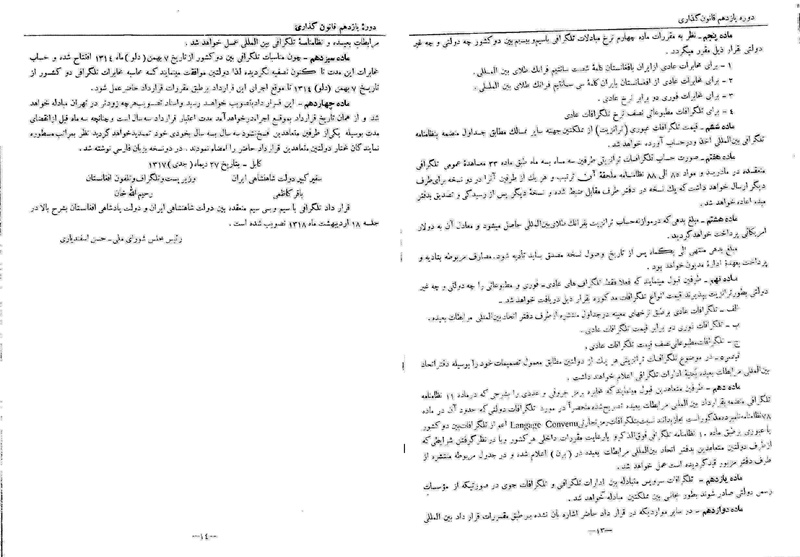 دوره یازدهم قانون گذاری
ماده پنجم ـ نظر به مقررات ماده چهارم نرخ مبادلات تلگرافی باسیم و بیسیم بین دو کشور چه دولتی و چه غیر
دولتی قرار ذیل مقرر میگردد.
۱ ـ برای مخابرات عادی از ایران بافغانستان کلمهٔ شصت سانتیم فرانک طلای بین المللی.
۲ ـ برای مخابرات عادی از افغانستان بایران کلمهٔ سی سانتیم فرانک طلای بین المللی.
۳ ـ برای مخابرات فوری دو برابر نرخ عادی.
۴ ـ برای تلگرافات مطبوعاتی نصف نرخ تلگرافات عادی
ماده ششم ـ قیمت تلگرافات عبوری (ترانزیت) از مملکتین جهته سایر ممالک مطابق جداول منضمه بنظامنامه
تلگرافی بین المللی اخذ و در حساب آورده خواهد شد.
ماده هفتم ـ صورت حساب تلگرافات ترانزیتی طرفین سه ماه بسه ماه طبق ماده ۳۳ معاهدهٔ عمومی تلگرافی
منعقده در مادرید و مواد ۸۵ الی ۸۸ نظامنامه ملحقهٔ آن ترتیب و هر یک از طرفین آنرا در دو نسخه برای طرف
دیگر ارسال خواهد داشت که یک نسخه در دفتر طرف مقابل ضبط شده و نسخهٔ دیگر پس از رسیدگی و تصدیق بدفتر
مبده اعاده خواهد شد.
ماده هشتم ـ مبلغ بدهی که در موازنه حساب ترانزیت بفرانک طلای بین المللی حاصل میشود و معادل آن به دولار
امریکائی پرداخت خواهد گردید.
مبلغ بدهی منتهی الی یکماه پس از تاریخ وصول نسخه مصدق باید تأدیه شود. مصارف مربوطه بتادیه و
پرداخت بعهده ادارهٔ مدیون خواهد بود.
ماده نهم ـ طرفین قبول مینمایند که فعلا فقط تلگراف های عادی ـ فوری و مطبوعاتی را چه دولتی و چه غیر
دولتی بطور ترانزیت بپذیرند قیمت انواع تلگرافات مذکوره بقرار ذیل دریافت خواهد شد.
الف ـ تلگرافات عادی بر طبق نرخهای معینه در جداول منتشره از طرف دفتر اتحاد بین المللی مرابطات بعیده.
ب ـ تلگرافات فوری دو برابر قیمت تلگرافات عادی.
ج ـ تلگرافات مطبوعاتی نصف قیمت تلگرافات عادی.
تبصره ـ در موضوع تلگرافات ترانزیتی هر یک از دولتین مطابق معمول تصمیمات خود را بوسیله دفتر اتحاد
بین المللی مرابطات بعیده ببقیهٔ ادارات تلگرافی اعلام خواهند داشت.
ماده دهم ـ طرفین متعاهدین قبول مینمایند که مخابره برمز حروفی و عددی را بشرحی که در ماده ۱۱ نظامنامه
تلگرافی منضمه بقرارداد بین المللی مرابطات بعیده تصریح شده منحصراً در مورد تلگرافات دولتی که حدود آن در ماده
۷۸ نظامنامه نامبرده مذکور است مجاز بدانند نسبت بتلگرافات رمز تجارتی Langage Convenu اعم از تلگرافات بین دو کشور
یا عبوری بر طبق ماده ۱۰ نظامنامه تلگرافی فوق الذکر و با رعایت مقررات داخلی هر کشور و با در نظر گرفتن شرایطی که
از طرف دولتین متعاهدین بدفتر اتحاد بین المللی مرابطات بعیده در (برن) اعلام شده و در جدول مربوطه منتشره از
طرف دفتر مزبور قید گردیده است عمل خواهد شد.
ماده یازدهم ـ تلگرافات سرویس متبادله بین ادارات تلگرافی و تلگرافات جوی در صورتیکه از مؤسسات
رسمی دولتی صادر شوند بطور مجانی بین مملکتین مبادله خواهد شد.
ماده دوازدهم ـ در سایر مواردیکه در قرار داد حاضر اشاره بآن نشده بر طبق مقررات قرار داد بین المللی
ـ۱۳ـ
دورهٔ یازدهم قانون گذاری
مرابطات بعیده و نظامنامهٔ تلگرافی بین المللی عمل خواهد شد.
ماده سیزدهم ـ چون مناسبات تلگرافی بین دو کشور از تاریخ ۷ بهمن (دلو) ماه ۱۳۱۴ افتتاح شده و حساب
مخابرات این مدت تا کنون تصفیه نگردیده لذا دولتین موافقت مینمایند که محاسبه مخابرات تلگرافی دو کشور از
تاریخ ۷ بهمن (دلو) ۱۳۱۴ تا موقع اجرای این قرارداد بر طبق مقررات قرارداد حاضر عمل شود.
ماده چهاردهم ـ این قرار داد بتصویب خواهد رسید و اسناد تصویب هر چه زودتر در تهران مبادله خواهد
شد و از همان تاریخ قرارداد بموقع اجرا در خواهد آمد مدت اعتبار قرارداد سه سال است و چنانچه سه ماه قبل از انقضای
مدت بوسیله یکی از طرفین متعاهدین فسخ نشود سه سال بسه سال بخودی خود تمدید خواهد گردید نظر بمراتب مسطوره
نمایندگان مختار دولتین متعاهدین قرار داد حاضر را امضاء نمودند. در دو نسخه بزبان فارسی نوشته شد.
کابل ـ بتاریخ ۲۷ دیماه (جدی) ۱۳۱۷
سفیر کبیر دولت شاهنشاهی ایران وزیر پست و تلگراف و تلفون افغانستان
باقر کاظمی رحیم الله خان
قرار داد تلگرافی با سیم و بی سیم منعقده بین دولت شاهنشاهی ایران و دولت پادشاهی افغانستان بشرح بالا در
جلسه ۱۸ اردیبهشت ماه ۱۳۱۸ تصویب شده است.
رئیس مجلس شورای ملی ـ حسن اسفندیاری
ـ۱۴ـ